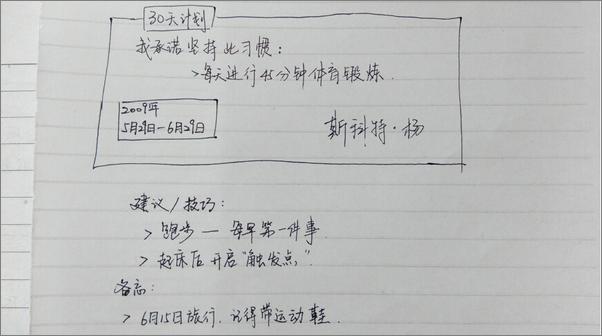 30天计划
我承诺坚持此习惯：
>每天进行45分钟体育锻炼.
2009年
5月29日—6月29日
斯科特·杨
建议/技巧：
> 跑步 — 每早第一件事
> 起床后开启“触发点”.
备忘：
> 6月15日旅行，记得带运动鞋.